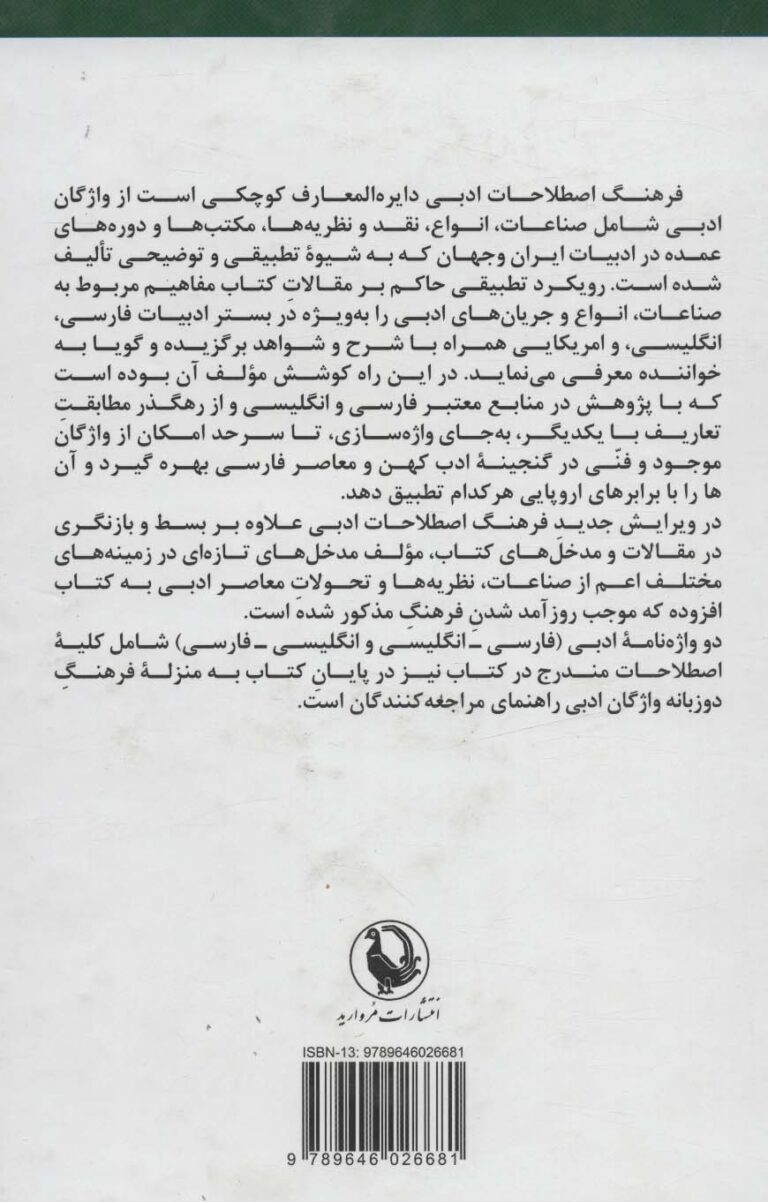 فرهنگ اصطلاحات ادبی دایره‌المعارف کوچکی است از واژگان
ادبی شامل صناعات، انواع، نقد و نظریه‌ها، مکتب‌ها و دوره‌های
عمده در ادبیات ایران وجهان که به شیوهٔ تطبیقی و توضیحی تألیف
شده است. رویکرد تطبیقی حاکم بر مقالاتِ کتاب مفاهیم مربوط به
صناعات، انواع و جریان‌های ادبی را به‌ویژه در بستر ادبیات فارسی،
انگلیسی، و امریکایی همراه با شرح و شواهد برگزیده و گویا به
خواننده معرفی می‌نماید. در این راه کوشش مؤلف آن بوده است
که با پژوهش در منابع معتبر فارسی و انگلیسی و از رهگذر مطابقتِ
تعاریف با یکدیگر، به‌جای واژه‌سازی، تا سرحد امکان از واژگان
موجود و فنّی در گنجینهٔ ادب کهن و معاصر فارسی بهره گیرد و آن
ها را با برابرهای اروپایی هرکدام تطبیق دهد.
در ویرایش جدید فرهنگ اصطلاحات ادبی علاوه بر بسط و بازنگری
در مقالات و مدخل‌های کتاب، مؤلف مدخل‌های تازه‌ای در زمینه‌های
مختلف اعم از صناعات، نظریه‌ها و تحولاتِ معاصر ادبی به کتاب
افزوده که موجب روزآمد شدنِ فرهنگِ مذکور شده است.
دو واژه‌نامهٔ ادبی (فارسی ـ انگلیسی و انگلیسی ـ فارسی) شامل کلیهٔ
اصطلاحات مندرج در کتاب نیز در پایانِ کتاب به منزلهٔ فرهنگِ
دوزبانه واژگان ادبی راهنمای مراجعه‌کنندگان است.
انتشارات مُروارید
ISBN-13: 9789646026681
9 789646 026681